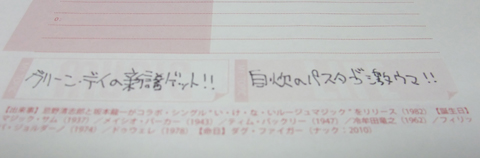 グリーン・デイの新譜ゲット!!
自炊のパスタが激ウマ!!
【出来事】忌野清志郎と坂本龍一がコラボ・シングル“い・け・な・いルージュマジック”をリリース（1982）【誕生日】
マジック・サム（1937）／メイシオ・パーカー（1943）／ティム・バックリー（1947）／冷牟田竜之（1962）／フィリッ
（1974）／ドゥウェレ（1978）【命日】ダグ・ファイガー（ナック：2010）